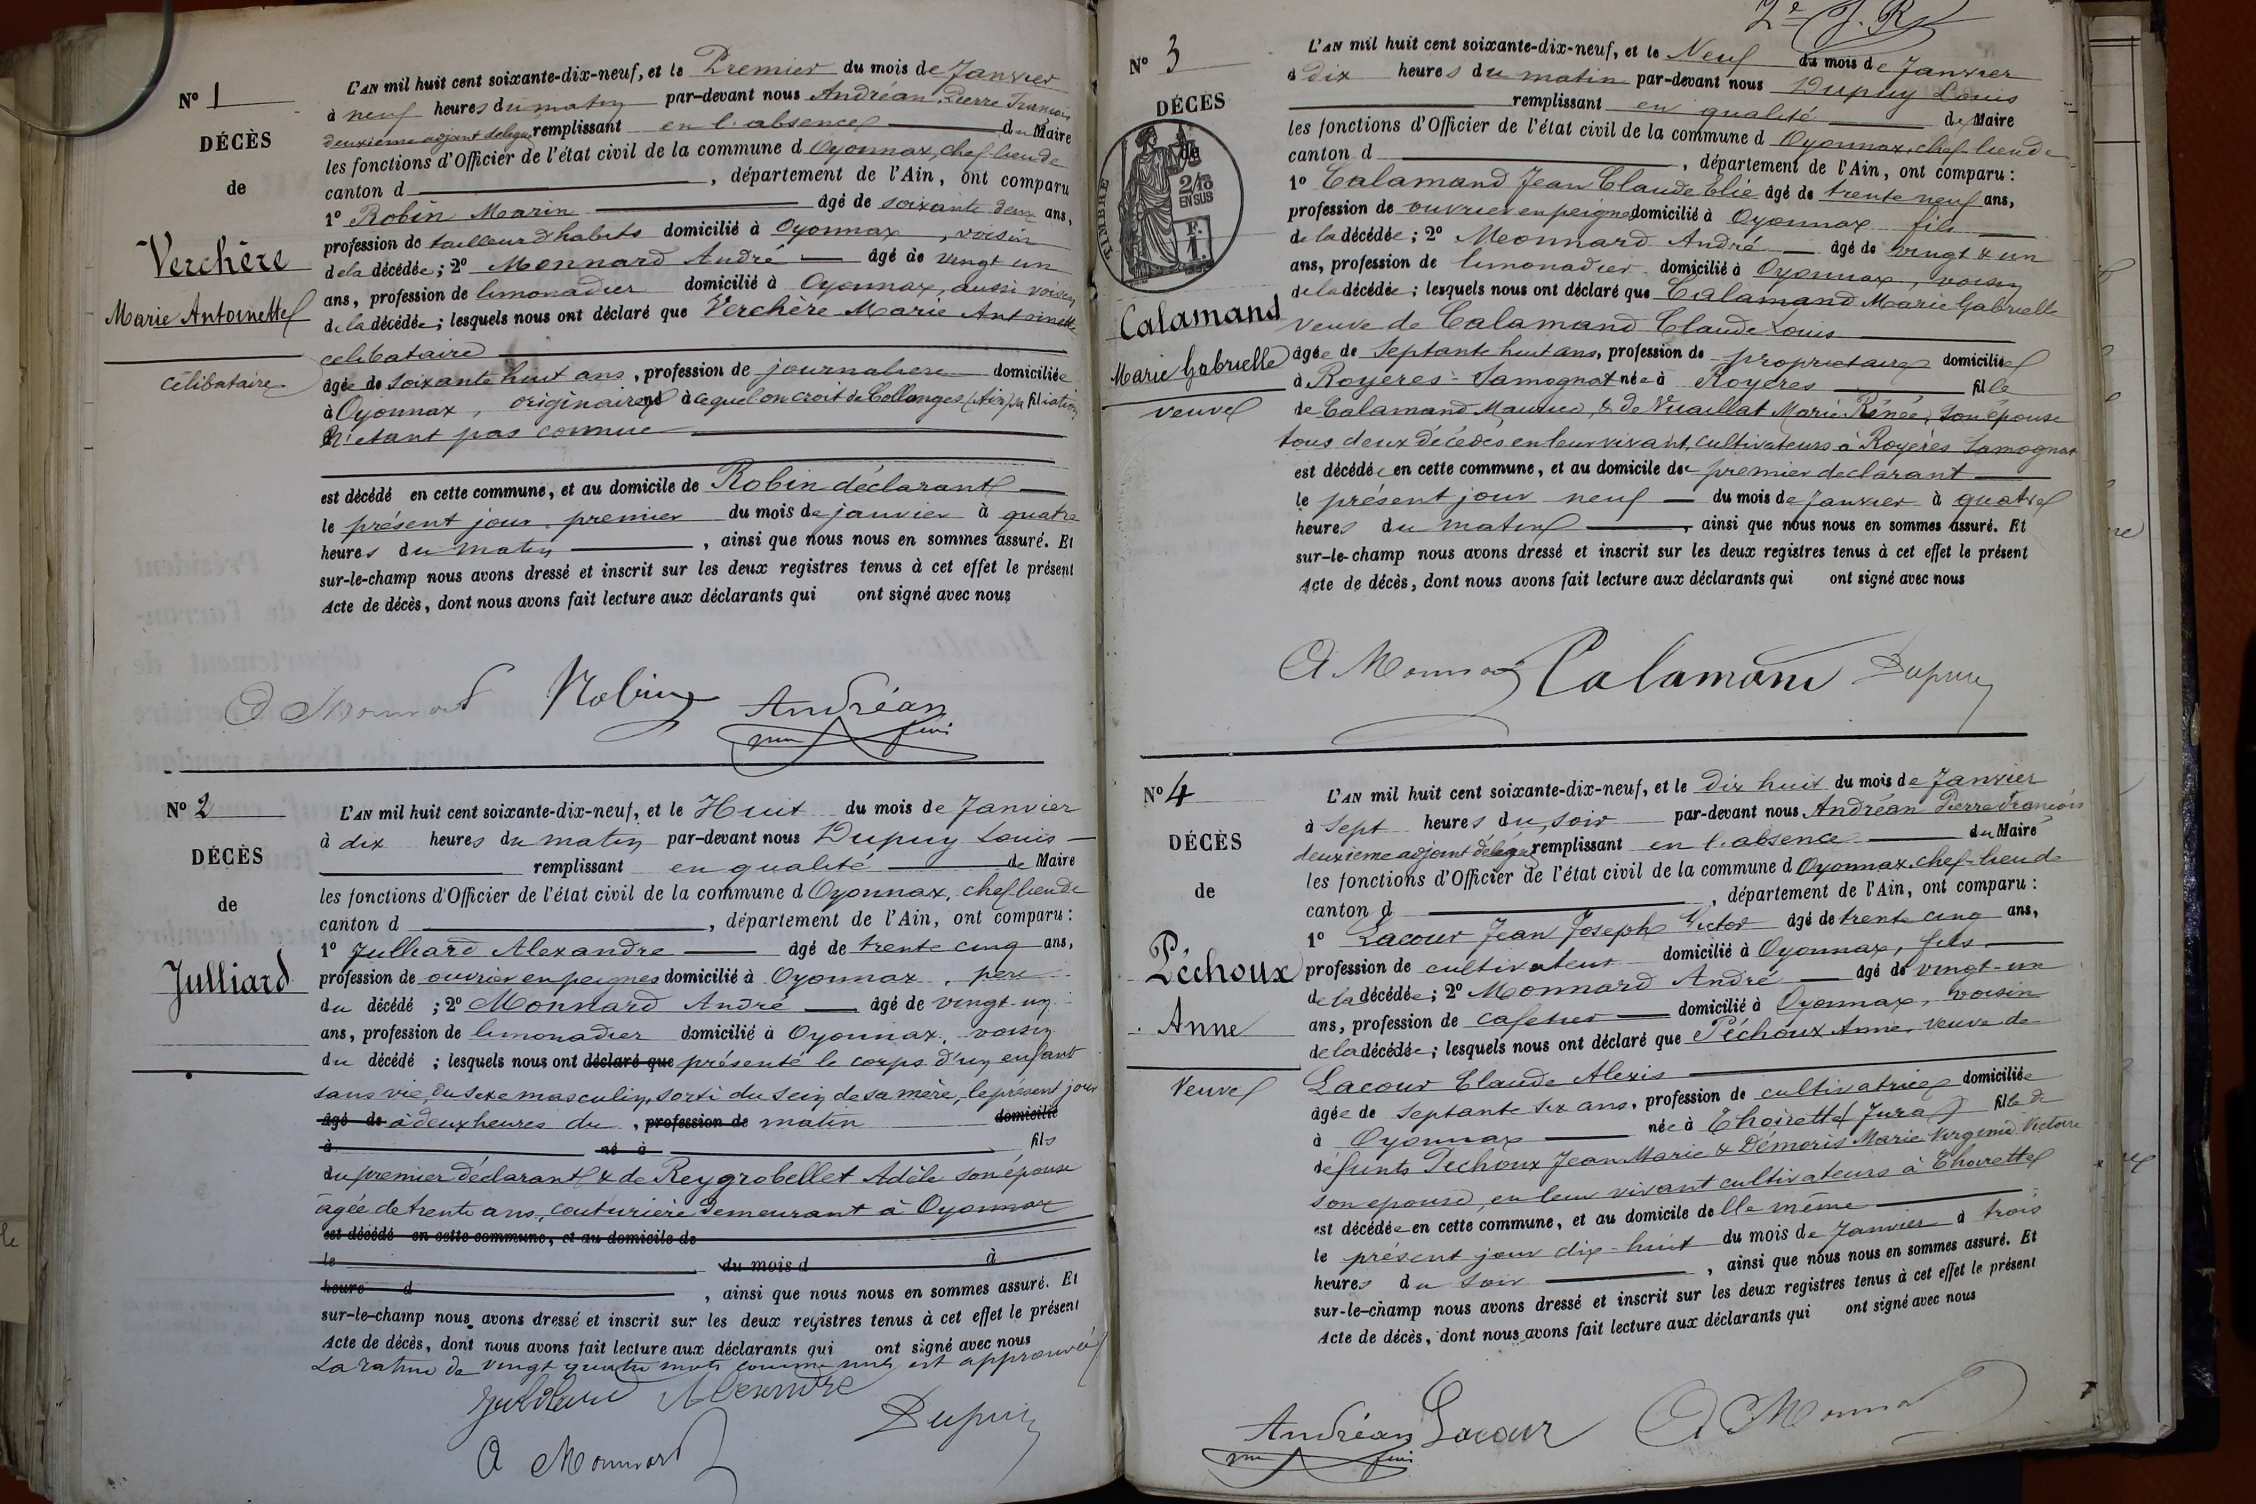 Nº 1
DÉCÈS
de
Verchère
Marie Antoinette
célibataire
L'AN mil huit cent soixante-dix-neuf, et le Premier du mois de Janvier
à neuf heures du matin par-devant nous Andréan Pierre François
deuxième adjoint délégué remplissant en l'absence du Maire
les fonctions d'Officier de l'état civil de la commune d Oyonnax, chef-lieu de
canton d , département de l'Ain, ont comparu
1º Robin Marin âgé de soixante deux ans,
profession de tailleur d'habits domicilié à Oyonnax, voisin
de la décédée; 2º Monnard André âgé de vingt un
ans, profession de limonadier domicilié à Oyonnax, aussi voisin
de la décédée; lesquels nous ont déclaré que Verchère Marie Antoinette
célibataire
âgée de soixante huit ans, profession de journalière domiciliée
à Oyonnax, originaire né à ce que l'on croit de Collonges (Ain) sa filiation
n'étant pas connue
est décédé en cette commune, et au domicile de Robin déclarant
le présent jour premier du mois de janvier à quatre
heures du matin , ainsi que nous nous en sommes assuré. Et
sur-le-champ nous avons dressé et inscrit sur les deux registres tenus à cet effet le présent
Acte de décès, dont nous avons fait lecture aux déclarants qui ont signé avec nous
A Monnard Robin Andréan
Nº 2
DÉCÈS
de
Julliard
L'AN mil huit cent soixante-dix-neuf, et le Huit du mois de Janvier
à dix heures du matin par-devant nous Dupuy Louis
remplissant en qualité de Maire
les fonctions d'Officier de l'état civil de la commune d Oyonnax, chef-lieu de
canton d , département de l'Ain, ont comparu:
1º Julliard Alexandre âgé de trente cinq ans,
profession de ouvrier en peignes domicilié à Oyonnax, père
du décédé; 2º Monnard André âgé de vingt-un
ans, profession de limonadier domicilié à Oyonnax, voisin
du décédé; lesquels nous ont déclaré que présenté le corps d'un enfant
sans vie, du sexe masculin, sorti du sein de sa mère, le présent jour
âgé de à deux heures du , profession de matin domicilié
à né à fils
du premier déclarant & de Reygrobellet Adèle son épouse
âgée de trente ans, couturière demeurant à Oyonnax
est décédé en cette commune, et au domicile de
le du mois d à
heure d , ainsi que nous nous en sommes assuré. Et
sur-le-champ nous avons dressé et inscrit sur les deux registres tenus à cet effet le présent
Acte de décès, dont nous avons fait lecture aux déclarants qui ont signé avec nous
La rature de vingt quatre mots comme nuls est approuvée
Julliard Alexandre
A Monnard Dupuy
2e J. R
Nº 3
DÉCÈS
de
TIMBRE
2/10
EN SUS
F.
1.
Calamand
Marie Gabrielle
veuve
L'AN mil huit cent soixante-dix-neuf, et le Neuf du mois de Janvier
à dix heures du matin par-devant nous Dupuy Louis
remplissant en qualité de Maire
les fonctions d'Officier de l'état civil de la commune d Oyonnax, chef-lieu de
canton d , département de l'Ain, ont comparu:
1º Calamand Jean Claude Elie âgé de trente neuf ans,
profession de ouvrier en peignes domicilié à Oyonnax fils
de la décédée; 2º Monnard André âgé de vingt & un
ans, profession de limonadier domicilié à Oyonnax, voisin
de la décédée; lesquels nous ont déclaré que Calamand Marie Gabrielle
veuve de Calamand Claude Louis
âgée de septante huit ans, profession de propriétaire domiciliée
à Royères-Samognat née à Royères fille
de Calamand Maurice, & de Vuaillat Marie Rénée, son épouse
tous deux décédés en leur vivant, cultivateurs à Royères Samognat
est décédée en cette commune, et au domicile du premier déclarant
le présent jour neuf du mois de Janvier à quatre
heures du matin , ainsi que nous nous en sommes assuré. Et
sur-le-champ nous avons dressé et inscrit sur les deux registres tenus à cet effet le présent
Acte de décès, dont nous avons fait lecture aux déclarants qui ont signé avec nous
A Monnard Calamand Dupuy
Nº 4
DÉCÈS
de
Péchoux
Anne
Veuve
L'AN mil huit cent soixante-dix-neuf, et le dix huit du mois de Janvier
à sept heures du soir par-devant nous Andréan Pierre François
deuxième adjoint délégué remplissant en l'absence du Maire
les fonctions d'Officier de l'état civil de la commune d Oyonnax, chef-lieu de
canton d , département de l'Ain, ont comparu:
1º Lacour Jean Joseph Victor âgé de trente cinq ans,
profession de cultivateur domicilié à Oyonnax, fils
de la décédée; 2º Monnard André âgé de vingt-un
ans, profession de cafetier domicilié à Oyonnax, voisin
de la décédée; lesquels nous ont déclaré que Péchoux Anne, veuve de
Lacour Claude Alexis
âgée de septante six ans, profession de cultivatrice domiciliée
à Oyonnax née à Thoirette (Jura) fille de
défunts Péchoux Jean Marie & Démoris Marie Virginie Victoire
son épouse, en leur vivant cultivateurs à Thoirette
est décédée en cette commune, et au domicile d'elle même
le présent jour dix-huit du mois de Janvier à trois
heures du soir , ainsi que nous nous en sommes assuré. Et
sur-le-champ nous avons dressé et inscrit sur les deux registres tenus à cet effet le présent
Acte de décès, dont nous avons fait lecture aux déclarants qui ont signé avec nous
Andréan Lacour A Monnard